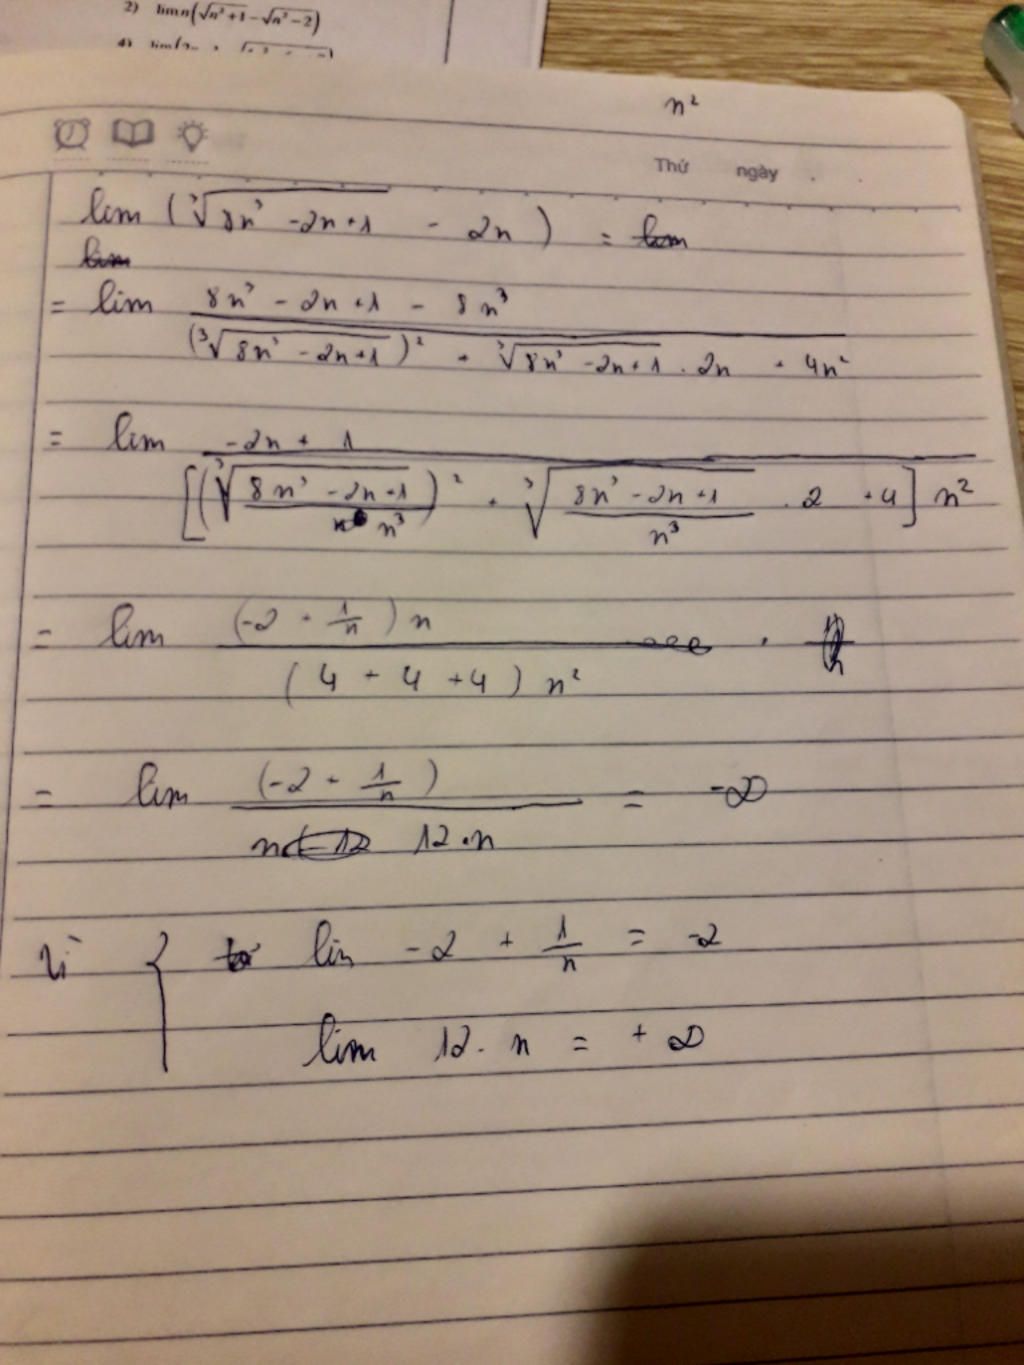 2) lim n(√(n²+1) − √(n²−2))
4)
n²
Thứ ngày
lim (∛(8n³ − 2n + 1) − 2n) =
= lim (8n³ − 2n + 1 − 8n³) / ((∛(8n³ − 2n + 1))² + ∛(8n³ − 2n + 1) . 2n + 4n²)
= lim (−2n + 1) / ([(∛((8n³ − 2n + 1)/n³))² + ∛((8n³ − 2n + 1)/n³) . 2 + 4] n²)
= lim ((−2 + 1/n) n) / ((4 + 4 + 4) n²)
= lim (−2 + 1/n) / (12.n) = −∞
Vì { lim −2 + 1/n = −2
lim 12. n = +∞